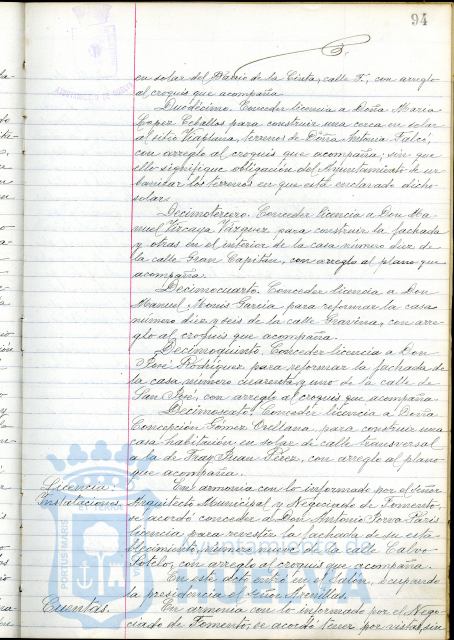 94
en solar del Barrio de la Cinta, calle F, con arreglo
al croquis que acompaña.
Duodécimo. Conceder licencia a Doña María
López Ceballos para construir una cerca en solar
al sitio Viaplana, terrenos de Doña Antonia Falcó,
con arreglo al croquis que acompaña, sin que
ello signifique obligación del Ayuntamiento de ur-
banizar los terrenos en que está enclavado dicho
solar.
Decimotercero. Conceder licencia a Don Ma-
nuel Vizcaya Vázquez para construir la fachada
y otras en el interior de la casa número diez de
la calle Gran Capitán, con arreglo al plano que
acompaña.
Decimocuarto. Conceder licencia a Don
Manuel Monis García para reformar la casa
número diez y seis de la calle Gravina, con arre-
glo al croquis que acompaña.
Decimoquinto. Conceder licencia a Don
José Rodríguez para reformar la fachada de
la casa número cuarenta y uno de la calle de
San José, con arreglo al croquis que acompaña.
Decimosexto. Conceder licencia a Doña
Concepción Gómez Orellana, para construir una
casa-habitación en solar de calle transversal
a la de Fray Juan Pérez, con arreglo al plano
que acompaña.
Licencia: En armonía con lo informado por el Señor
Instalaciones. Arquitecto Municipal y Negociado de Fomento,
se acordó conceder a Don Antonio París
licencia para revestir la fachada de su esta-
blecimiento, número nueve de la calle Calvo
Sotelo, con arreglo al croquis que acompaña.
En este acto entró en el Salón, ocupando
la presidencia el Señor
Cuentas. En armonía con lo informado por el Nego-
ciado de Fomento, se acordó tener por vistas, sin
PORTUS MARIS